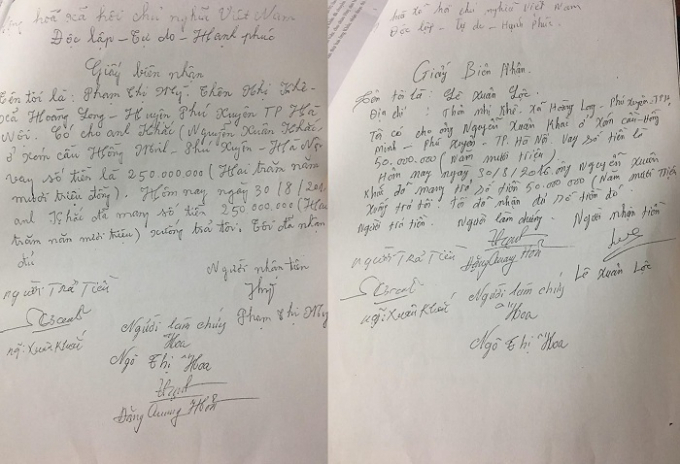 hoà xã hội chủ nghĩa Việt Nam
Độc lập - Tự do - Hạnh phúc
Giấy biên nhận
Tên tôi là : Phạm Thị Mỹ. Thôn Nhị Khê-
xã Hoàng Long - Huyện Phú Xuyên TP Hà
Nội. Có cho anh Khải (Nguyễn Xuân Khải)
ở xóm cầu Hồng Minh - Phú Xuyên - Hà Nội
vay số tiền là 250.000.000 (Hai trăm năm
mươi triệu đồng). Hôm nay ngày 30/8/
anh Khải đã mang số tiền 250.000.000 (Hai
trăm năm mươi triệu) xuống trả tôi. Tôi đã nhận
đủ
Người nhận tiền
người Trả Tiền
Phạm Thị Mỹ
Người làm chứng
Hoa
Ngô Thị Hoa
Đặng Quang
hoà xã hội chủ nghĩa Việt Nam
Độc lập - Tự do - Hạnh Phúc.
Giấy Biên Nhận.
Tên tôi là : Lê Xuân Lộc.
Địa chỉ : Thôn nhị Khê. xã Hoàng Long. Phú Xuyên. TP
Tôi có cho ông Nguyễn Xuân Khải ở xóm cầu - Hồng
Minh - Phú Xuyên - TP. Hà Nội Vay số tiền là
50.000.000 (Năm mươi triệu)
Hôm nay ngày 30/8/2016 ông Nguyễn Xuân
Khải đã mang trả số tiền 50.000.000 (Năm mươi triệu)
xuống trả tôi. Tôi đã nhận đủ số tiền đó.
Người trả tiền. Người làm chứng. Người nhận tiền
người Trả Tiền
Đặng Quang
Lê Xuân Lộc
Người làm chứng
Hoa
Ngô Thị Hoa